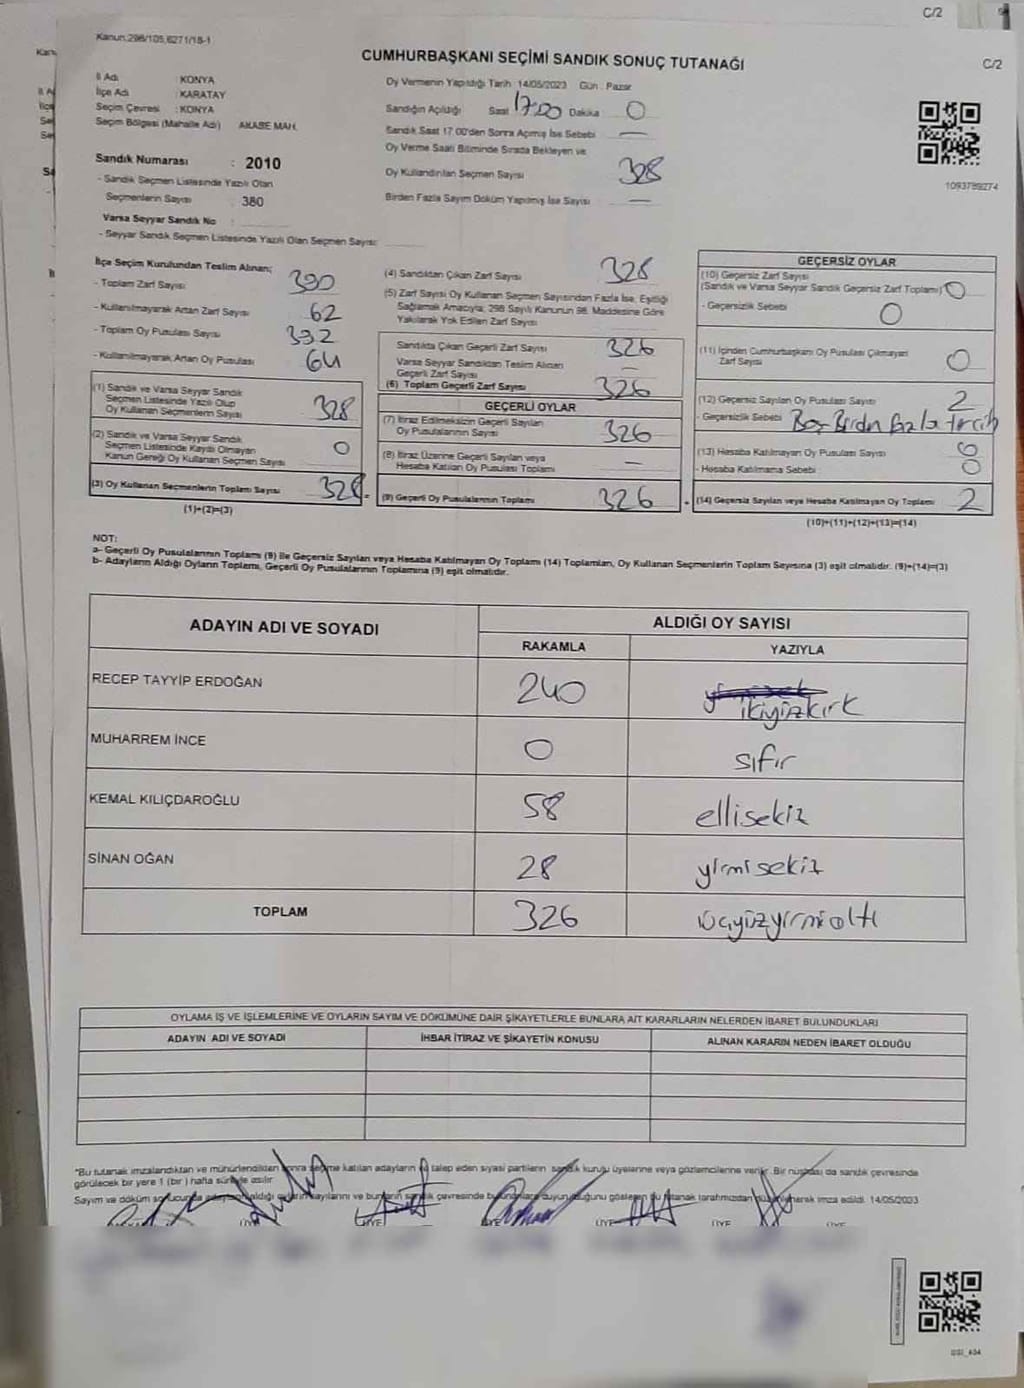 C/2
Kanun:298/105,6271/18-1
CUMHURBAŞKANI SEÇİMİ SANDIK SONUÇ TUTANAĞI
C/2
İl Adı : KONYA
İlçe Adı : KARATAY
Seçim Çevresi : KONYA
Seçim Bölgesi (Mahalle Adı) AKABE MAH.
Sandık Numarası : 2010
- Sandık Seçmen Listesinde Yazılı Olan
Seçmenlerin Sayısı 380
Varsa Seyyar Sandık No :
- Seyyar Sandık Seçmen Listesinde Yazılı Olan Seçmen Sayısı:
Oy Vermenin Yapıldığı Tarih : 14/05/2023 Gün : Pazar
Sandığın Açıldığı Saat 17:00 Dakika 0
Sandık Saat 17:00'den Sonra Açılmış İse Sebebi —
Oy Verme Saati Bitiminde Sırada Bekleyen ve
Oy Kullandırılan Seçmen Sayısı 328
Birden Fazla Sayım Döküm Yapılmış İse Sayısı —
1093789274
İlçe Seçim Kurulundan Teslim Alınan;
- Toplam Zarf Sayısı 390
- Kullanılmayarak Artan Zarf Sayısı 62
- Toplam Oy Pusulası Sayısı 392
- Kullanılmayarak Artan Oy Pusulası 64
(1) Sandık ve Varsa Seyyar Sandık
Seçmen Listesinde Yazılı Olup
Oy Kullanan Seçmenlerin Sayısı 328
(2) Sandık ve Varsa Seyyar Sandık
Seçmen Listesinde Kaydı Olmayan
Kanun Gereği Oy Kullanan Seçmen Sayısı 0
(3) Oy Kullanan Seçmenlerin Toplam Sayısı 328 =
(1)+(2)=(3)
(4) Sandıktan Çıkan Zarf Sayısı 328
(5) Zarf Sayısı Oy Kullanan Seçmen Sayısından Fazla İse, Eşitliği
Sağlamak Amacıyla; 298 Sayılı Kanunun 98. Maddesine Göre
Yakılarak Yok Edilen Zarf Sayısı
Sandıkta Çıkan Geçerli Zarf Sayısı 326
Varsa Seyyar Sandıktan Teslim Alınan
Geçerli Zarf Sayısı —
(6) Toplam Geçerli Zarf Sayısı 326
GEÇERLİ OYLAR
(7) İtiraz Edilmeksizin Geçerli Sayılan
Oy Pusulalarının Sayısı 326
(8) İtiraz Üzerine Geçerli Sayılan veya
Hesaba Katılan Oy Pusulası Toplamı —
(9) Geçerli Oy Pusulalarının Toplamı 326
GEÇERSİZ OYLAR
(10) Geçersiz Zarf Sayısı
(Sandık ve Varsa Seyyar Sandık Geçersiz Zarf Toplamı) 0
- Geçersizlik Sebebi 0
(11) İçinden Cumhurbaşkanı Oy Pusulası Çıkmayan
Zarf Sayısı 0
(12) Geçersiz Sayılan Oy Pusulası Sayısı 2
- Geçersizlik Sebebi Boş-Birden fazla tercih
(13) Hesaba Katılmayan Oy Pusulası Sayısı 0
- Hesaba Katılmama Sebebi 0
(14) Geçersiz Sayılan veya Hesaba Katılmayan Oy Toplamı 2
(10)+(11)+(12)+(13)=(14)
NOT:
a- Geçerli Oy Pusulalarının Toplamı (9) ile Geçersiz Sayılan veya Hesaba Katılmayan Oy Toplamı (14) Toplamları, Oy Kullanan Seçmenlerin Toplam Sayısına (3) eşit olmalıdır. (9)+(14)=(3)
b- Adayların Aldığı Oyların Toplamı, Geçerli Oy Pusulalarının Toplamına (9) eşit olmalıdır.
ADAYIN ADI VE SOYADI ALDIĞI OY SAYISI
RAKAMLA YAZIYLA
RECEP TAYYİP ERDOĞAN 240 ikiyüzkırk
MUHARREM İNCE 0 sıfır
KEMAL KILIÇDAROĞLU 58 ellisekiz
SİNAN OĞAN 28 yirmisekiz
TOPLAM 326 üçyüzyirmialtı
OYLAMA İŞ VE İŞLEMLERİNE VE OYLARIN SAYIM VE DÖKÜMÜNE DAİR ŞİKAYETLERLE BUNLARA AİT KARARLARIN NELERDEN İBARET BULUNDUKLARI
ADAYIN ADI VE SOYADI İHBAR İTİRAZ VE ŞİKAYETİN KONUSU ALINAN KARARIN NEDEN İBARET OLDUĞU
*Bu tutanak imzalandıktan ve mühürlendikten sonra seçime katılan adayların ve talep eden siyasi partilerin sandık kurulu üyelerine veya gözlemcilerine verilir. Bir nüshası da sandık çevresinde
görülecek bir yere 1 (bir) hafta süreyle asılır.
Sayım ve döküm sonucunda adayların aldığı oyların sayılarını ve bunların sandık çevresinde bulunanlara duyurulduğunu gösteren bu tutanak tarafımızdan düzenlenerek imza edildi. 14/05/2023
ÜYE ÜYE ÜYE ÜYE ÜYE